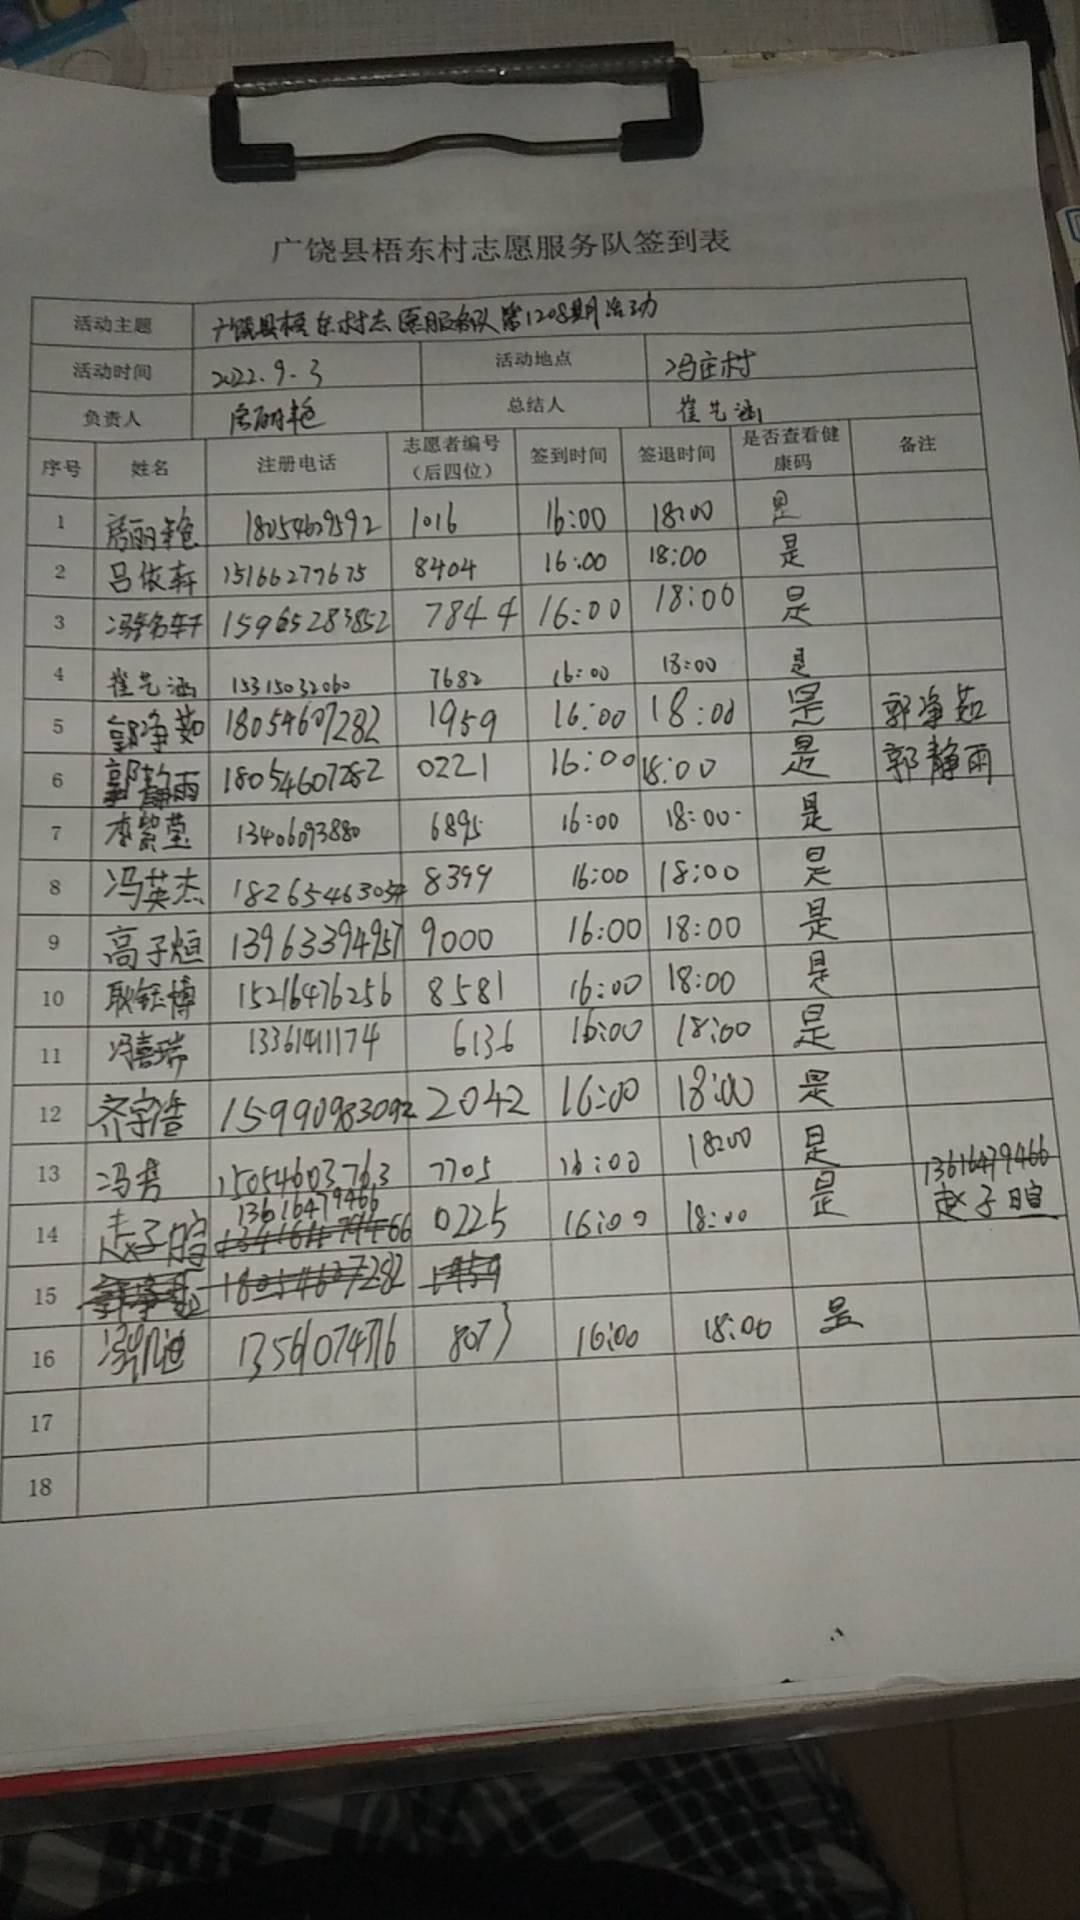 广饶县梧东村志愿服务队签到表
活动主题 广饶县梧东村志愿服务队第1208期活动
活动时间 2022.9.3 活动地点 冯庄村
负责人 房丽艳 总结人 崔艺涵
序号 姓名 注册电话 志愿者编号（后四位） 签到时间 签退时间 是否查看健康码 备注
1 房丽艳 18054629592 1016 16:00 18:00 是
2 吕依轩 15166277675 8404 16:00 18:00 是
3 15965283852 7844 16:00 18:00 是
4 崔艺涵 15315032060 7682 16:00 18:00 是
5 郭净茹 18054607282 1959 16:00 18:00 是 郭净茹
6 郭静雨 18054607282 0221 16:00 18:00 是 郭静雨
7 李紫莹 13406093880 6895 16:00 18:00 是
8 冯英杰 18265463054 8399 16:00 18:00 是
9 高子烜 13963394957 9000 16:00 18:00 是
10 耿钰博 15216476256 8581 16:00 18:00 是
11 冯嘉瑞 13361411174 6136 16:00 18:00 是
12 齐宇浩 15990983092 2042 16:00 18:00 是
13 15054603763 7705 16:00 18:00 是
14 赵子暄 13616479466 0225 16:00 18:00 是 13616479466 赵子暄
15 18054607282 1959
16 8073 16:00 18:00 是
17
18